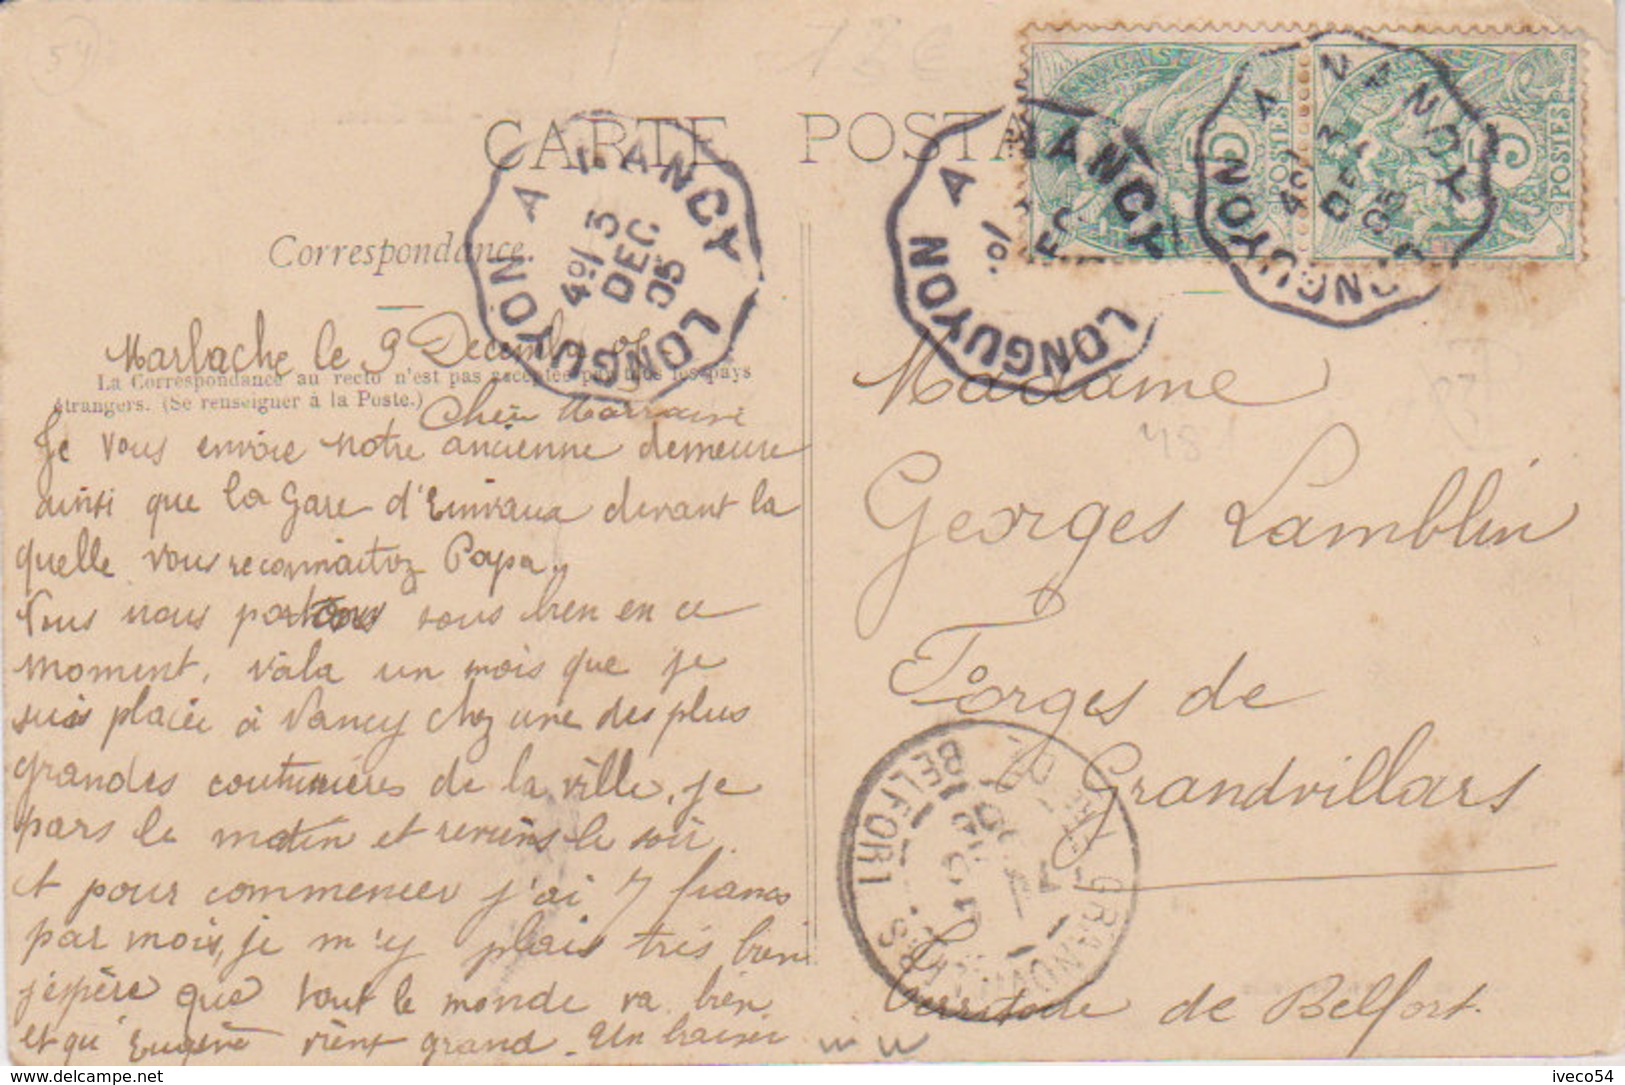 54
CARTE POSTA
Correspondance.
La Correspondance au recto n'est pas acceptée par tous les pays
étrangers. (Se renseigner à la Poste.)
NANCY A LONGUYON
401 3
DEC
05
NANCY
LONGUYON A
NANCY
LONGUYON A
401 3
DEC
05
5 POSTES
5 POSTES
Marbache le 9 Décembre 05
Chère Marraine
Je vous envoie notre ancienne demeure
ainsi que la gare d'Einvaux devant la
quelle vous reconnaitrez Papa.
Nous nous portons tous bien en ce
moment. Voila un mois que je
suis placée à Nancy chez une des plus
grandes couturières de la ville, je
pars le matin et reviens le soir.
et pour commencer j'ai 7 francs
par mois, je m'y plais très bien
j'espère que tout le monde va bien
et qu'Eugène vient grand. Un baiser
Madame
Georges Lamblin
Forges de
Grandvillars
Territoire de Belfort.
GRANDVILLARS
BELFORT
iveco54